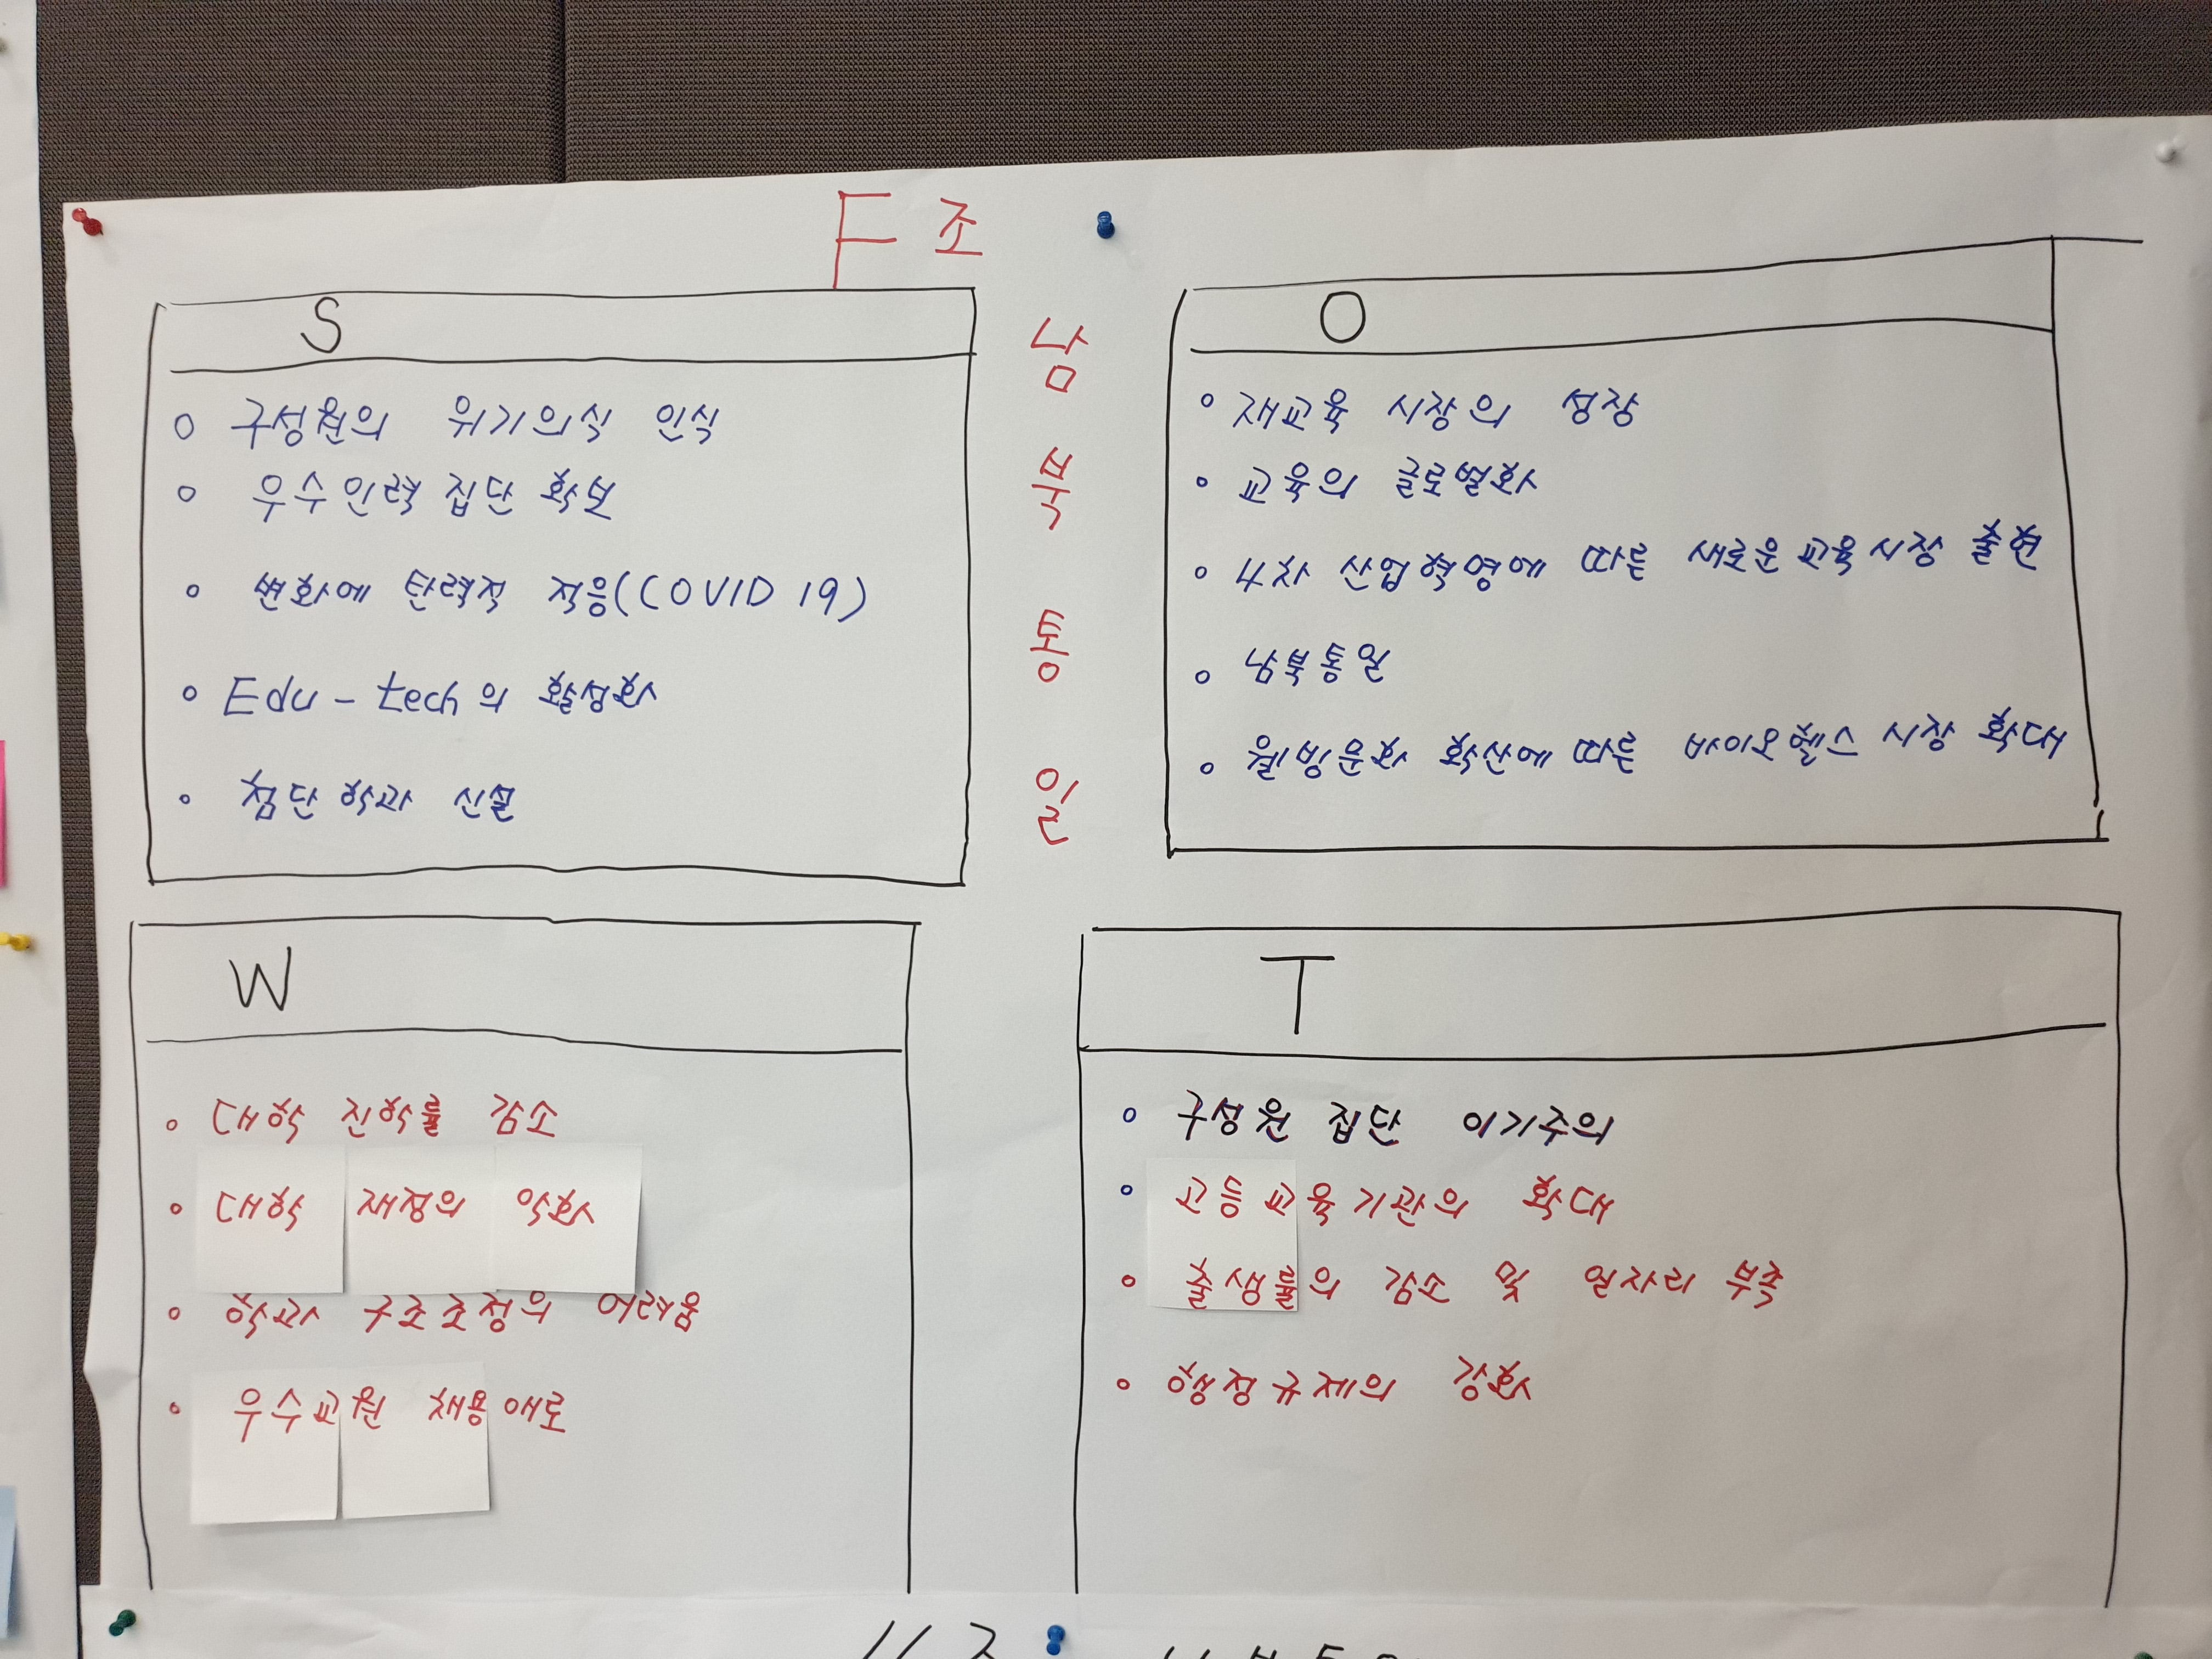 F조
남북통일
S
구성원의 위기의식 인식
우수인력 집단 확보
변화에 탄력적 적응(COVID 19)
Edu-tech의 활성화
첨단학과 신설
O
재교육 시장의 성장
교육의 글로벌화
4차 산업혁명에 따른 새로운 교육시장 출현
남북통일
웰빙문화 확산에 따른 바이오헬스 시장 확대
W
대학 진학률 감소
대학 재정의 악화
학과 구조조정의 어려움
우수교원 채용애로
T
구성원 집단 이기주의
고등교육기관의 확대
출생률의 감소 및 일자리 부족
행정규제의 강화